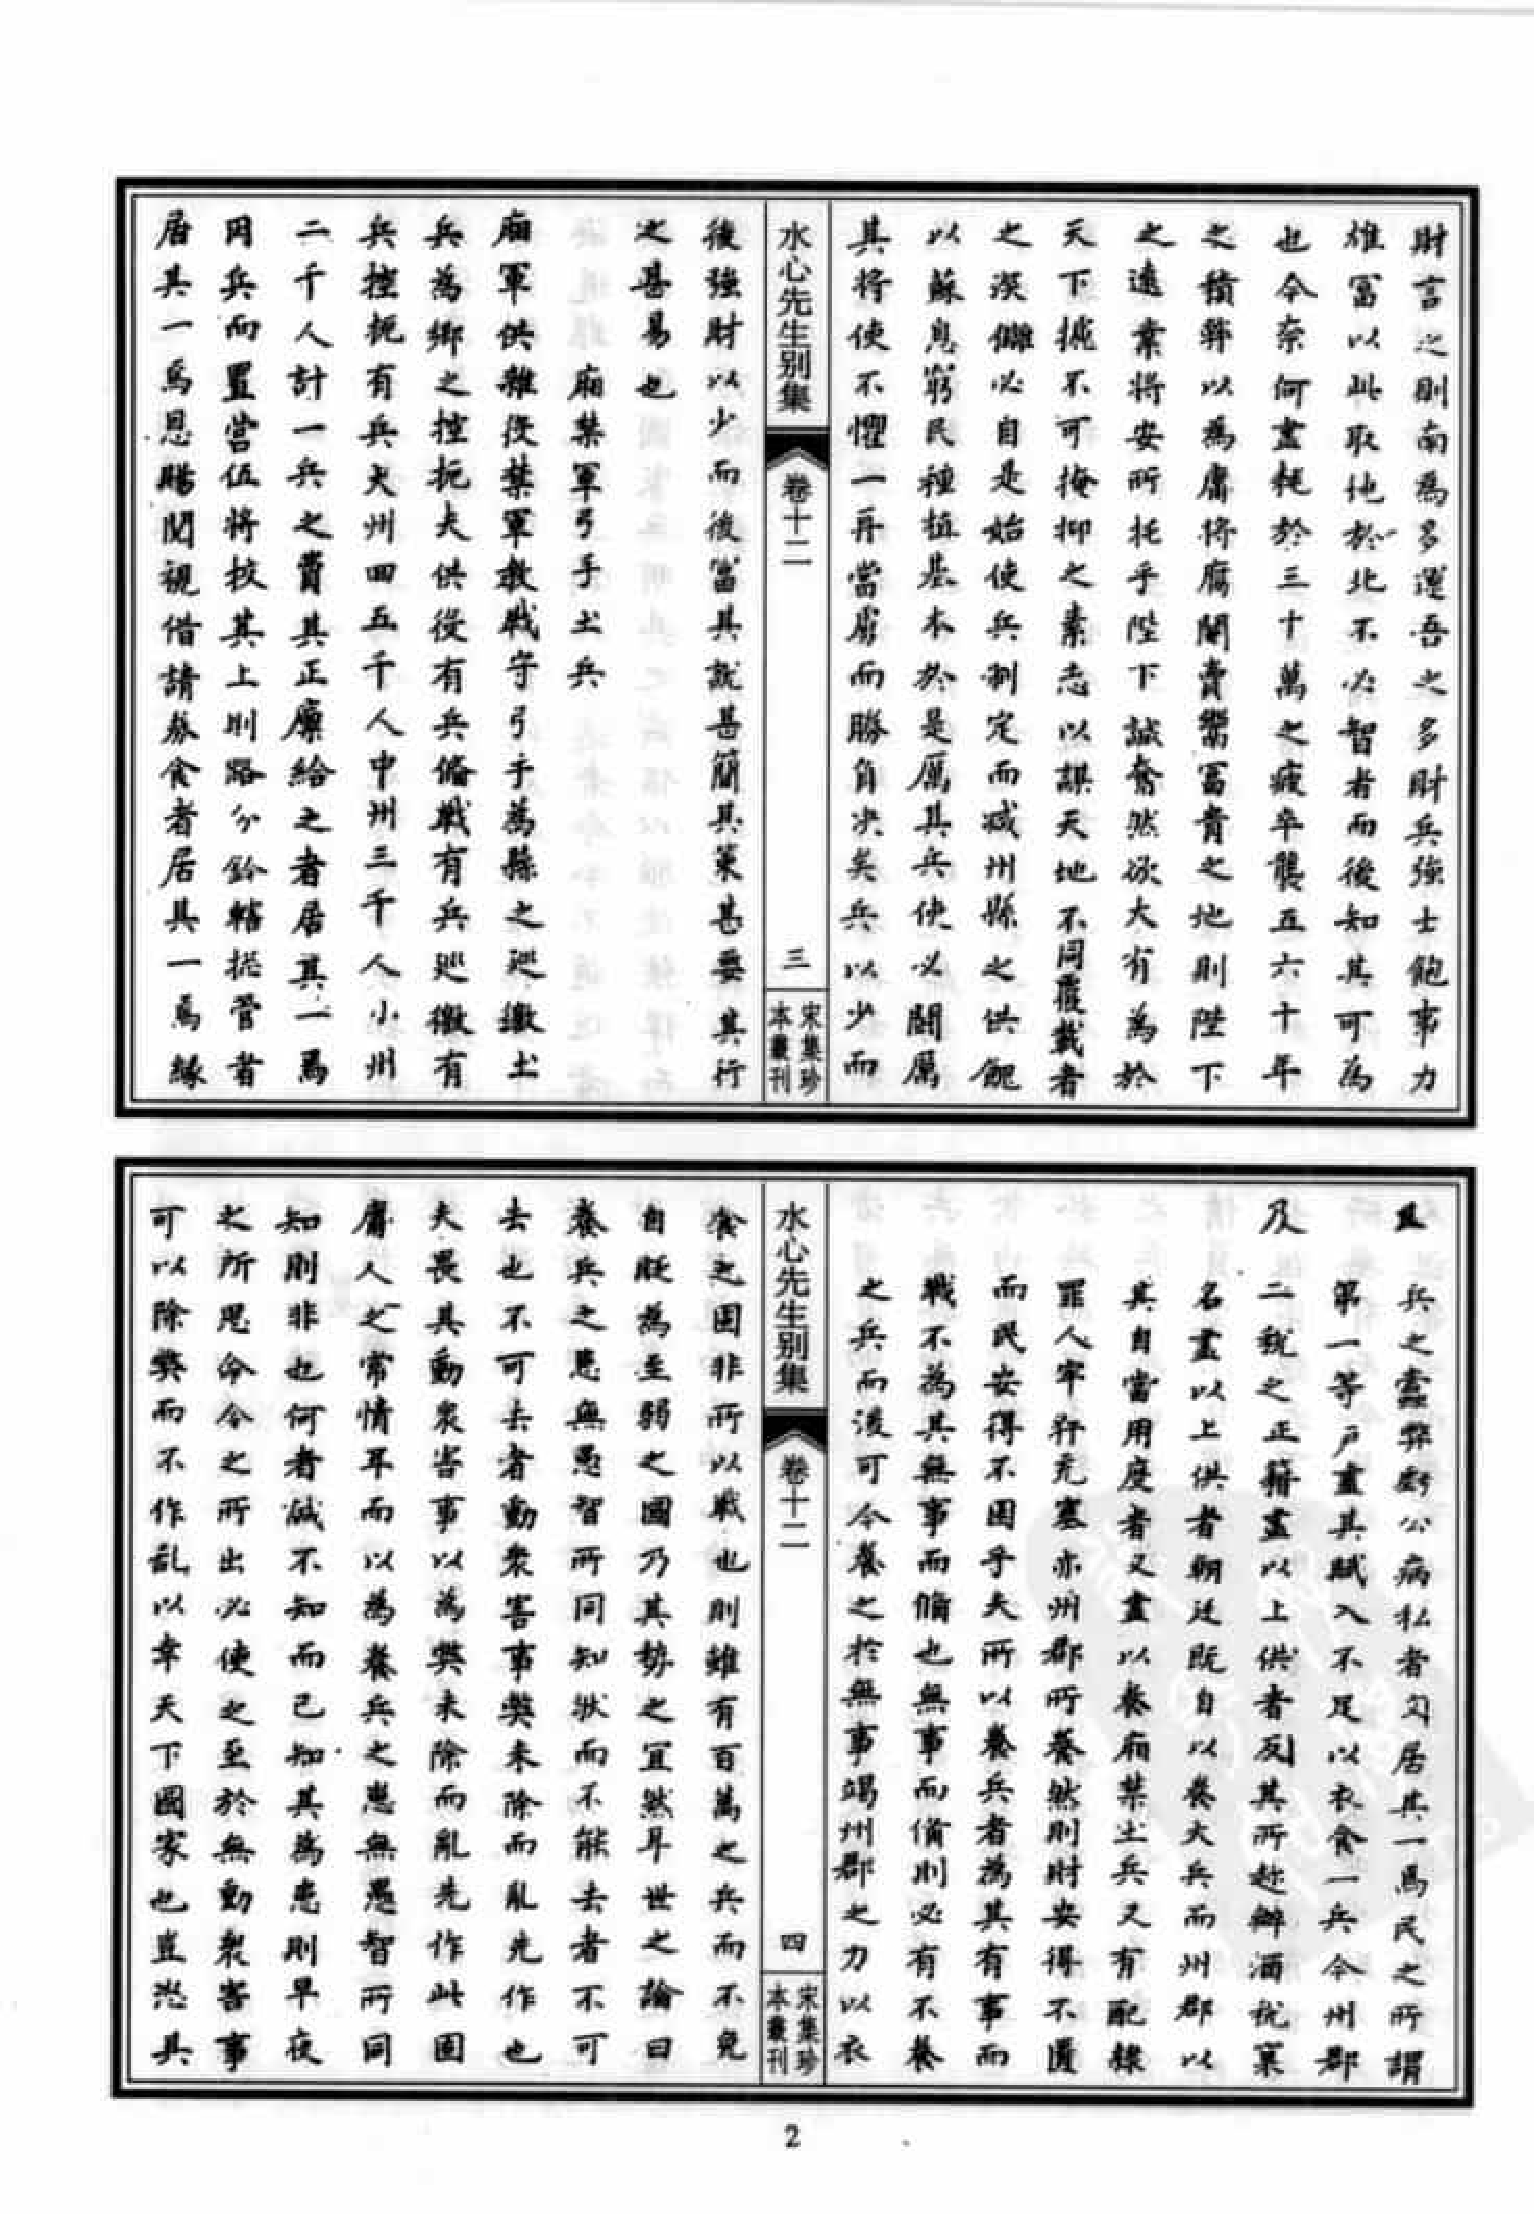 財言之則南為多運吾之多財兵強士飽事力
雄富以此取地於北不必智者而後知其可為
也今奈何盡耗於三十萬之疲卒襲五六十年
之積弊以為庸將腐閹賣鬻富貴之地則陛下
之遠業將安所托乎陛下誠奮然欲大有為於
天下挑不可掩抑之素志以謀天地不同覆載者
之深讎必自是始使兵制定而減州縣之供餽
以蘇息窮民種植基本於是厲其兵使必鬬厲
其將使不懼一再當虜而勝負决矣兵以少而
水心先生别集
卷十二
三
宋集珍
本叢刊
後強財以少而後富其説甚簡其策甚要其行
之甚易也
廂禁軍弓手土兵
廂軍供雜役禁軍教戰守弓手為縣之廵徼土
兵為鄉之控扼夫供役有兵備戰有兵廵徼有
兵控扼有兵大州四五千人中州三千人小州
二千人計一兵之費其正廪給之者居其一焉
因兵而置營伍將校其上則路分鈐轄揔管者
居其一焉恩賜閲視借請券食者居其一焉緣
兵之蠧弊虧公病私者又居其一焉民之所謂
且第一等户盡其賦入不足以衣食一兵今州郡
二税之正籍盡以上供者反其所趂辦酒税窠
及名盡以上供者朝廷既自以養大兵而州郡以
其自當用度者又盡以養廂禁土兵又有配隸
罪人牢犴充塞亦州郡所養然則財安得不匱
而民安得不困乎夫所以養兵者為其有事而
戰不為其無事而備也無事而備則必有不養
之兵而後可今養之於無事竭州郡之力以衣
水心先生别集
卷十二
四
宋集珍
本叢刊
食之困非所以戰也則雖有百萬之兵而不免
自貶為至弱之國乃其勢之宜然耳世之論曰
養兵之患無愚智所同知狀而不能去者不可
去也不可去者動衆害事獘未除而亂先作也
夫畏其動衆害事以為獘未除而亂先作此固
庸人之常情耳而以為養兵之患無愚智所同
知則非也何者誠不知而已知其為患則早夜
之所思命令之所出必使之至於無動衆害事
可以除獘而不作亂以幸天下國家也豈恣具
2